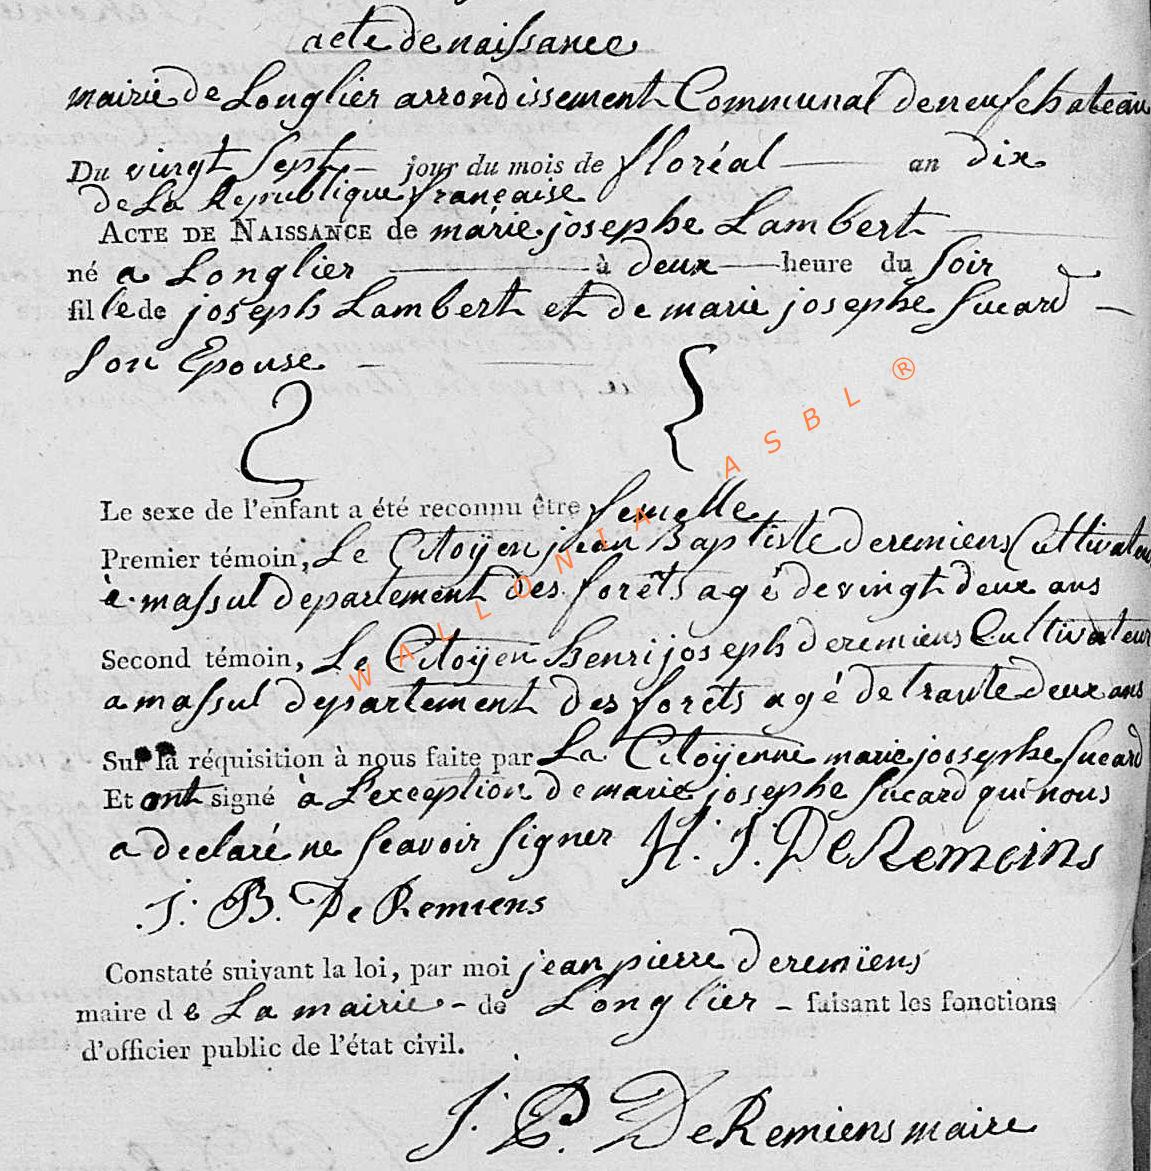 acte de naissance
mairie de Longlier arrondissement Communal de neufchateau
Du vingt Sept jour du mois de floréal an dix
de La Republique française
ACTE DE NAISSANCE de marie josephe Lambert
né a Longlier à deux heure du Soir
fille de joseph Lambert et de marie josephe Sucard
Son Epouse
WALLONIA ASBL ®
Le sexe de l'enfant a été reconnu être femelle
Premier témoin, Le Citoÿen jean Baptiste deremiens Cultivateur
à massul departement des forêts agé de vingt deux ans
Second témoin, Le Citoÿen henri joseph deremiens Cultivateur
a massul departement des forêts agé de trante deux ans
Sur la réquisition à nous faite par La Citoÿenne marie jossephe Sucard
Et ont signé à L'exception de marie josephe Sucard qui nous
a declaré ne Scavoir Signer H. J. DeRemeins
J. B. De Remiens
Constaté suivant la loi, par moi jean pierre deremïens
maire de La mairie - de Longlier - faisant les fonctions
d'officier public de l'état civil.
J. P. DeRemiens maire